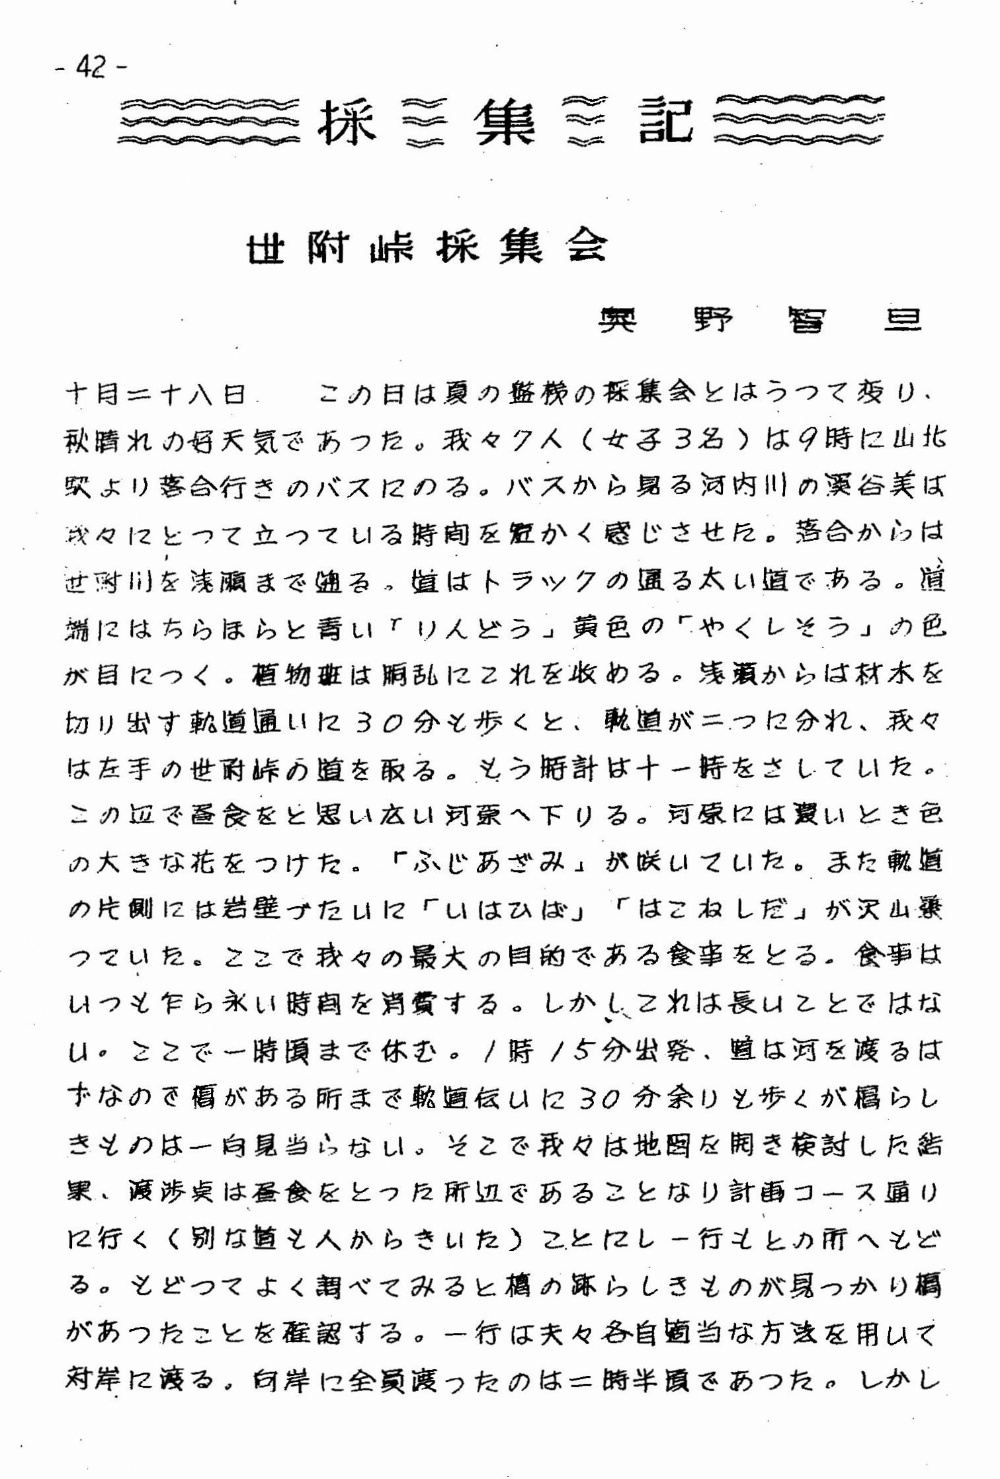 - 42 -
採集記
世附峠採集会
奥野智旦
十月二十八日　この日は夏の盤梯の採集会とはうつて変り、
秋晴れの好天気であつた。我々7人（女子3名）は9時に山北
駅より落合行きのバスにのる。バスから見る河内川の渓谷美は
我々にとつて立つている時間を短かく感じさせた。落合からは
世附川を浅瀬まで遡る。道はトラックの通る太い道である。道
端にはちらほらと青い「りんどう」黄色の「やくしそう」の色
が目につく。植物班は胴乱にこれを收める。浅瀬からは材木を
切り出す軌道通いに30分も歩くと、軌道が二つに分れ、我々
は左手の世附峠の道を取る。もう時計は十一時をさしていた。
この辺で昼食をと思い広い河原へ下りる。河原には濃いとき色
の大きな花をつけた。「ふじあざみ」が咲いていた。また軌道
の片側には岩壁づたいに「いはひば」「はこねしだ」が沢山乗
つていた。ここで我々の最大の目的である食事をとる。食事は
いつも乍ら永い時間を消費する。しかしこれは長いことではな
い。ここで一時頃まで休む。1時15分出発、道は河を渡るは
ずなので橋がある所まで軌道伝いに30分余りも歩くが橋らし
きものは一向見当らない。そこで我々は地図を開き検討した結
果、渡渉点は昼食をとつた所辺であることなり計画コース通り
に行く（別な道も人からきいた）ことにし一行もとの所へもど
る。もどつてよく調べてみると橋の跡らしきものが見つかり橋
があつたことを確認する。一行は夫々各自適当な方法を用いて
対岸に渡る。向岸に全員渡つたのは二時半頃であつた。しかし